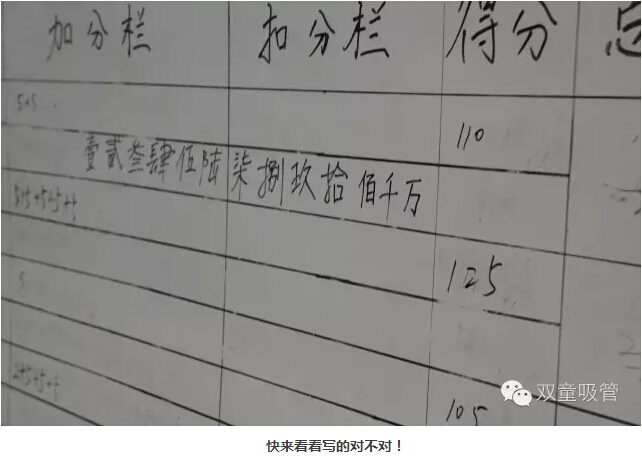 加分栏 扣分栏 得分 总
5+5 110
壹贰叁肆伍陆柒捌玖拾佰千万
5+5+5+5+5
125
5
2+5+5+5
105
双童吸管
快来看看写的对不对！